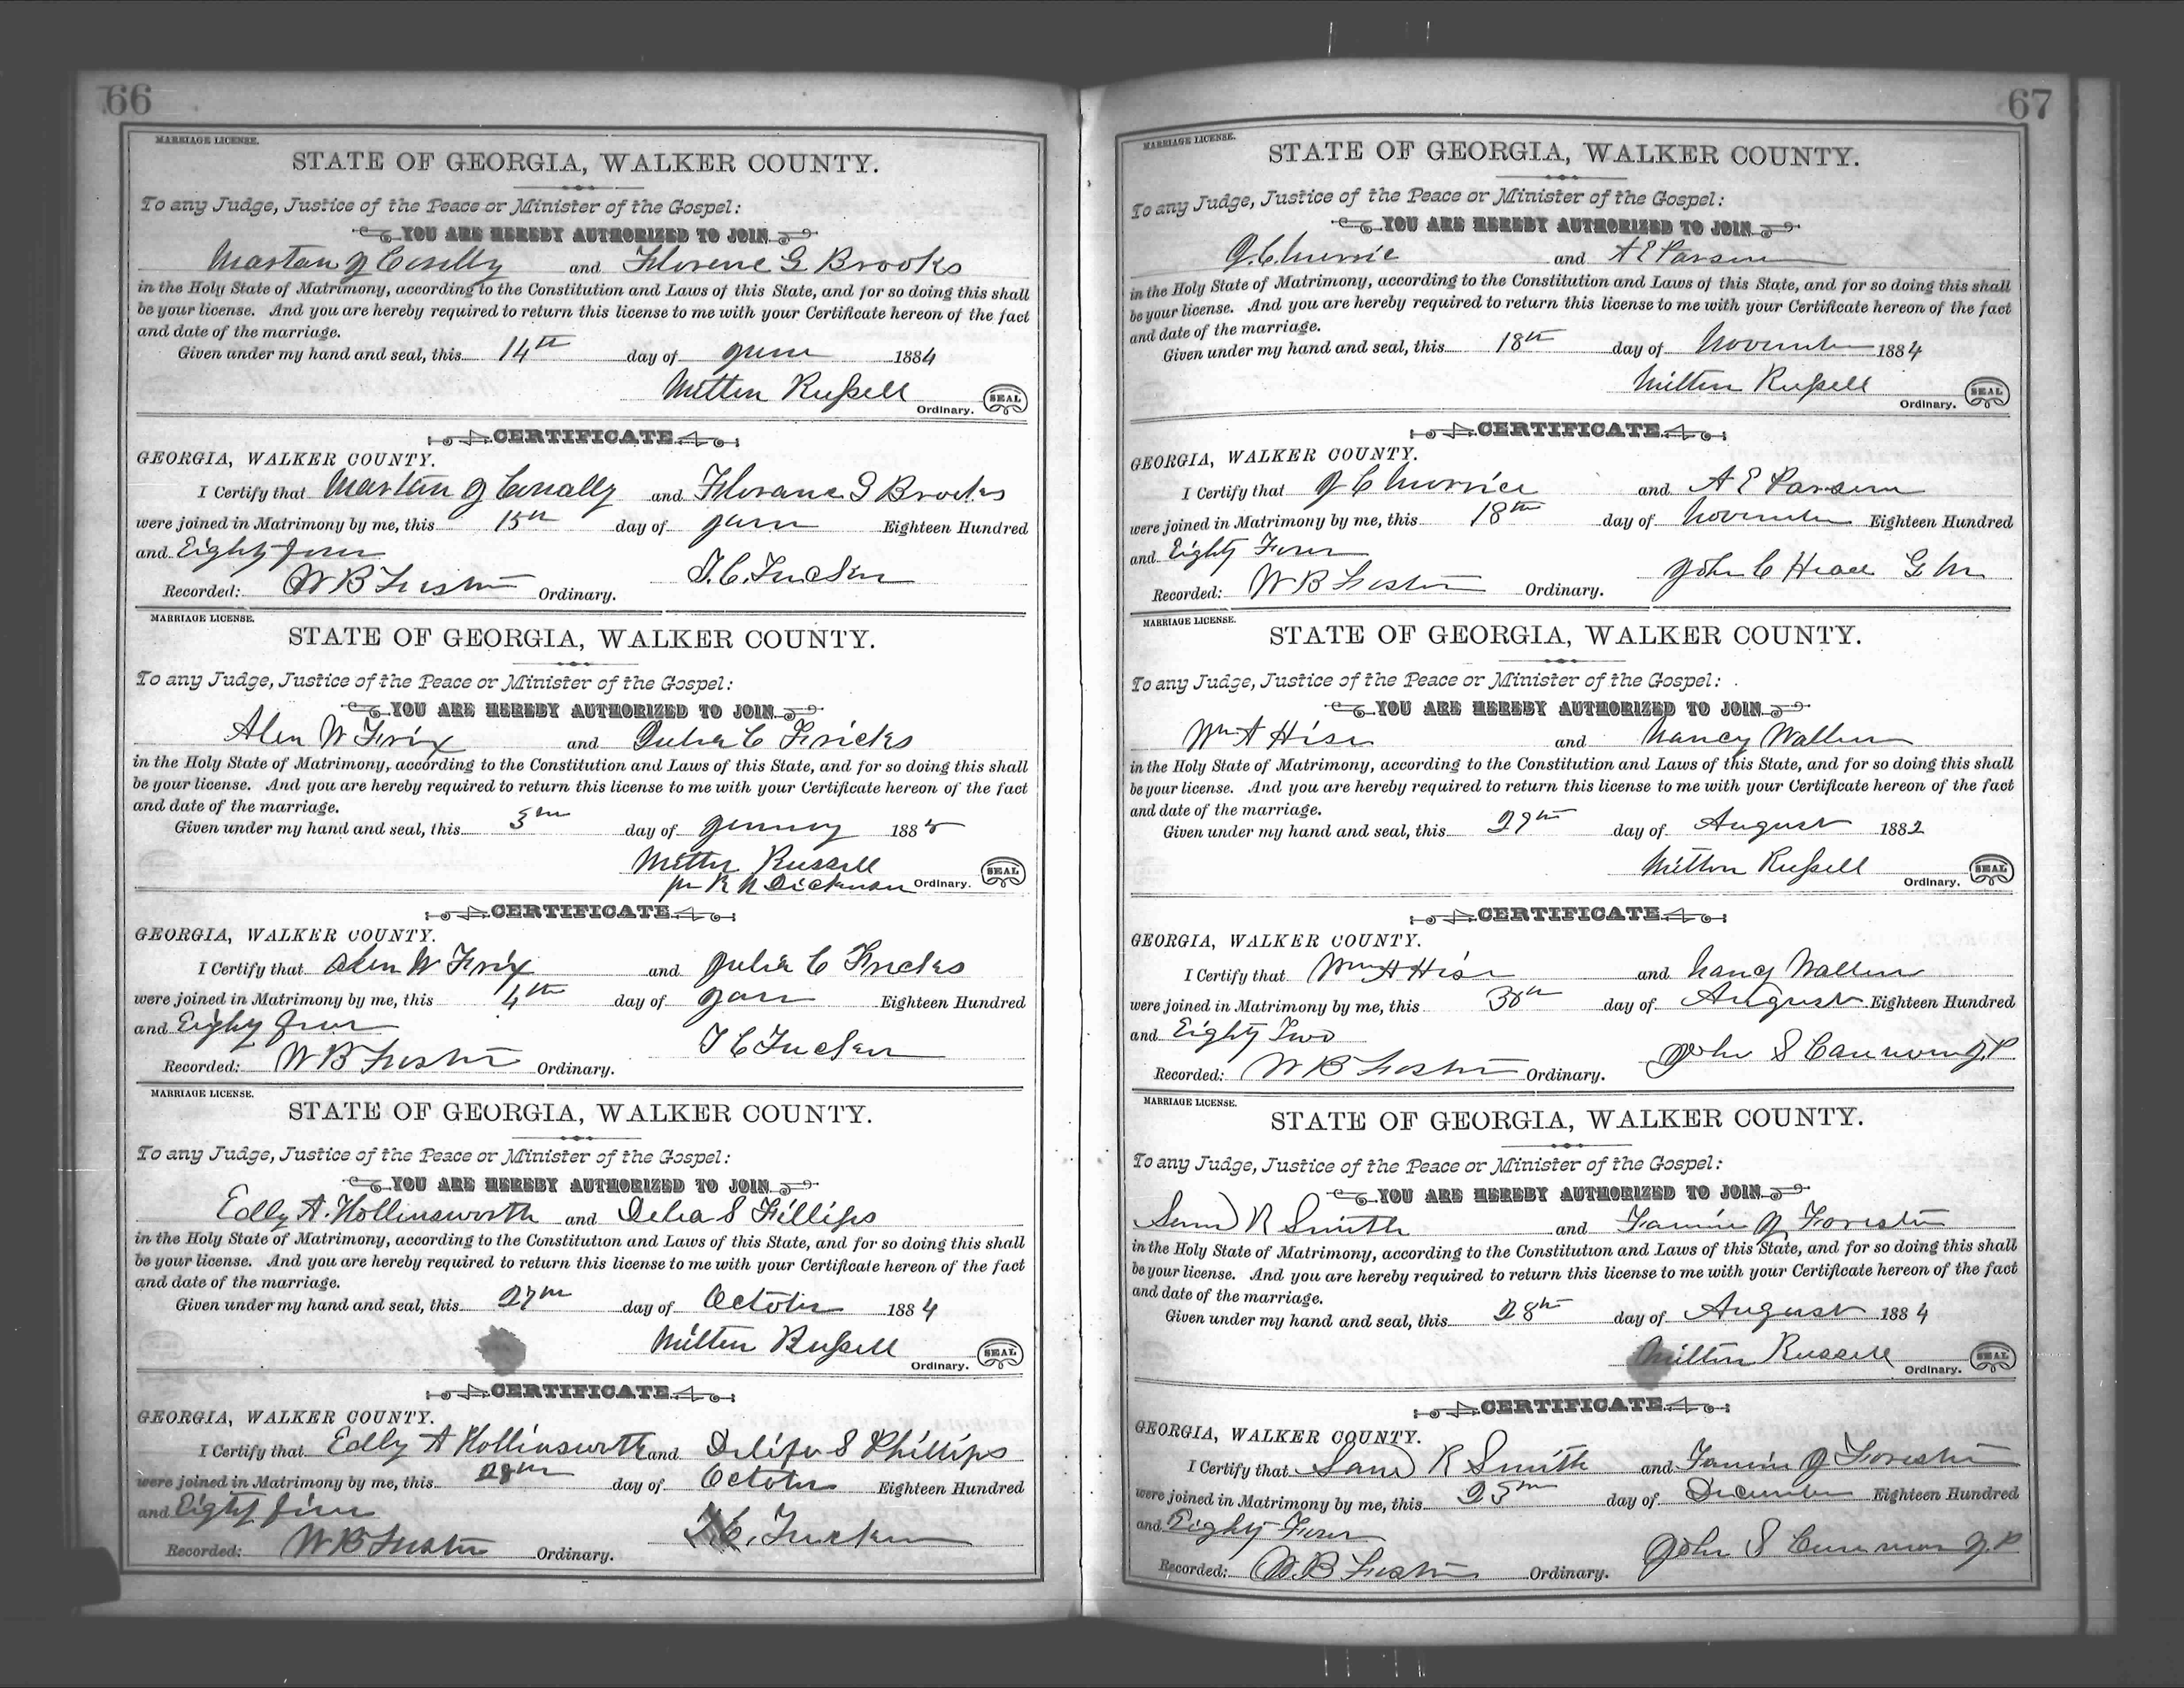 66
MARRIAGE LICENSE.
STATE OF GEORGIA, WALKER COUNTY.
To any Judge, Justice of the Peace or Minister of the Gospel:
YOU ARE HEREBY AUTHORIZED TO JOIN
Martan J and Florence G Brooks
in the Holy State of Matrimony, according to the Constitution and Laws of this State, and for so doing this shall
be your license. And you are hereby required to return this license to me with your Certificate hereon of the fact
and date of the marriage.
Given under my hand and seal, this 14th day of 1884
Milton Russell
Ordinary. SEAL
CERTIFICATE
GEORGIA, WALKER COUNTY.
I Certify that Martan J Conally and Florance G Brooks
were joined in Matrimony by me, this 15th day of Eighteen Hundred
and Eighty four
T. C. Tucker
Recorded: W B Foster Ordinary.
MARRIAGE LICENSE.
STATE OF GEORGIA, WALKER COUNTY.
To any Judge, Justice of the Peace or Minister of the Gospel:
YOU ARE HEREBY AUTHORIZED TO JOIN
Alen W Frix and Julia C Fricks
in the Holy State of Matrimony, according to the Constitution and Laws of this State, and for so doing this shall
be your license. And you are hereby required to return this license to me with your Certificate hereon of the fact
and date of the marriage.
Given under my hand and seal, this 3rd day of 188
Milton Russell
pr R N Dickerson Ordinary. SEAL
CERTIFICATE
GEORGIA, WALKER COUNTY.
I Certify that Alen W Frix and Julia C Fricks
were joined in Matrimony by me, this 4th day of Jan Eighteen Hundred
and Eighty
T C Tucker
Recorded: W B Foster Ordinary.
MARRIAGE LICENSE.
STATE OF GEORGIA, WALKER COUNTY.
To any Judge, Justice of the Peace or Minister of the Gospel:
YOU ARE HEREBY AUTHORIZED TO JOIN
Edly A. Hollinsworth and Delia S Fillips
in the Holy State of Matrimony, according to the Constitution and Laws of this State, and for so doing this shall
be your license. And you are hereby required to return this license to me with your Certificate hereon of the fact
and date of the marriage.
Given under my hand and seal, this 27th day of October 1884
Milton Russell
Ordinary. SEAL
CERTIFICATE
GEORGIA, WALKER COUNTY.
I Certify that Edly A Hollinsworth and S Phillips
were joined in Matrimony by me, this 28th day of October Eighteen Hundred
and Eighty
T. C. Tucker
Recorded: W B Foster Ordinary.
67
MARRIAGE LICENSE.
STATE OF GEORGIA, WALKER COUNTY.
To any Judge, Justice of the Peace or Minister of the Gospel:
YOU ARE HEREBY AUTHORIZED TO JOIN
J. C. and A E Parson
in the Holy State of Matrimony, according to the Constitution and Laws of this State, and for so doing this shall
be your license. And you are hereby required to return this license to me with your Certificate hereon of the fact
and date of the marriage.
Given under my hand and seal, this 18th day of November 1884
Milton Russell
Ordinary. SEAL
CERTIFICATE
GEORGIA, WALKER COUNTY.
I Certify that J C and A E Parson
were joined in Matrimony by me, this 18th day of November Eighteen Hundred
and Eighty Four
John C G M
Recorded: W B Foster Ordinary.
MARRIAGE LICENSE.
STATE OF GEORGIA, WALKER COUNTY.
To any Judge, Justice of the Peace or Minister of the Gospel:
YOU ARE HEREBY AUTHORIZED TO JOIN
Wm A Hise and Nancy Wallen
in the Holy State of Matrimony, according to the Constitution and Laws of this State, and for so doing this shall
be your license. And you are hereby required to return this license to me with your Certificate hereon of the fact
and date of the marriage.
Given under my hand and seal, this 29th day of August 1882
Milton Russell
Ordinary. SEAL
CERTIFICATE
GEORGIA, WALKER COUNTY.
I Certify that Wm A Hise and Nancy Wallen
were joined in Matrimony by me, this 30th day of August Eighteen Hundred
and Eighty Two
John S J.P
Recorded: W B Foster Ordinary.
MARRIAGE LICENSE.
STATE OF GEORGIA, WALKER COUNTY.
To any Judge, Justice of the Peace or Minister of the Gospel:
YOU ARE HEREBY AUTHORIZED TO JOIN
Saml R Smith and Fannie J Forester
in the Holy State of Matrimony, according to the Constitution and Laws of this State, and for so doing this shall
be your license. And you are hereby required to return this license to me with your Certificate hereon of the fact
and date of the marriage.
Given under my hand and seal, this 28th day of August 1884
Milton Russell
Ordinary. SEAL
CERTIFICATE
GEORGIA, WALKER COUNTY.
I Certify that Saml R Smith and Fannie J Forester
were joined in Matrimony by me, this 25th day of December Eighteen Hundred
and Eighty Four
John S J. P
Recorded: W. B Foster Ordinary.